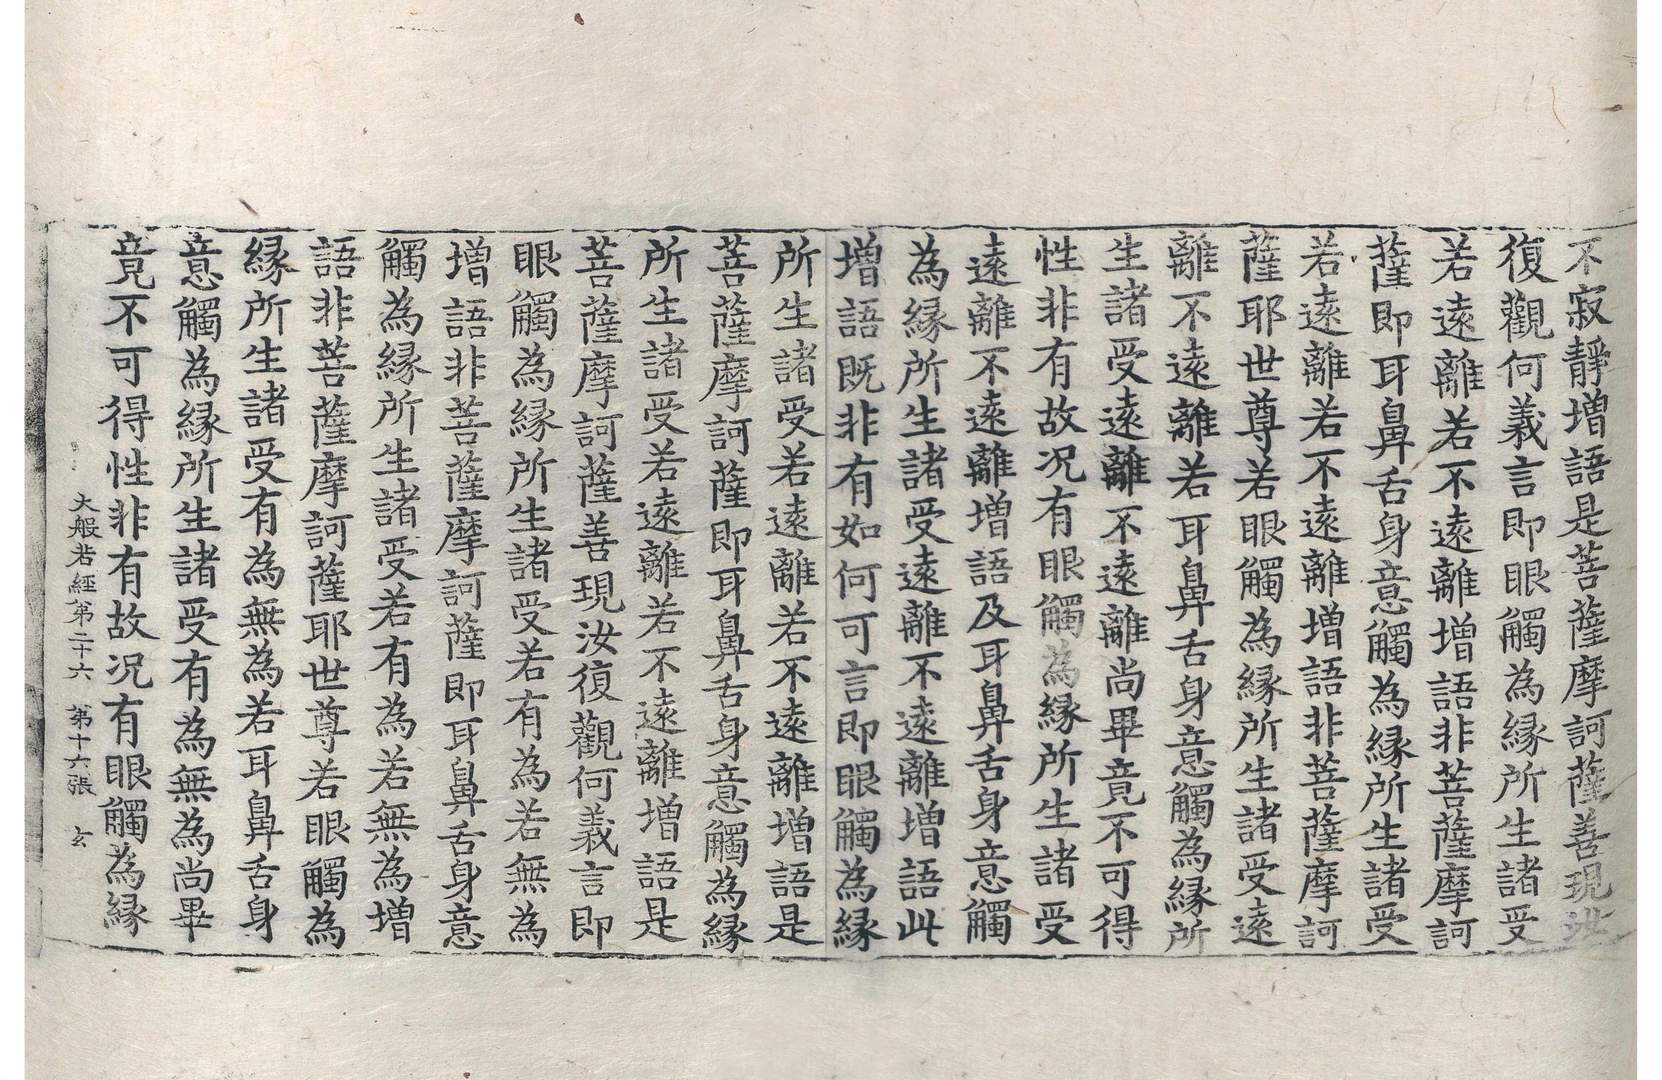 不寂靜增語是菩薩摩訶薩善現汝
復觀何義言即眼觸為緣所生諸受
若遠離若不遠離增語非菩薩摩訶
薩即耳鼻舌身意觸為緣所生諸受
若遠離若不遠離增語非菩薩摩訶
薩耶世尊若眼觸為緣所生諸受遠
離不遠離若耳鼻舌身意觸為緣所
生諸受遠離不遠離尚畢竟不可得
性非有故况有眼觸為緣所生諸受
遠離不遠離增語及耳鼻舌身意觸
為緣所生諸受遠離不遠離增語此
增語既非有如何可言即眼觸為緣
所生諸受若遠離若不遠離增語是
菩薩摩訶薩即耳鼻舌身意觸為緣
所生諸受若遠離若不遠離增語是
菩薩摩訶薩善現汝復觀何義言即
眼觸為緣所生諸受若有為若無為
增語非菩薩摩訶薩即耳鼻舌身意
觸為緣所生諸受若有為若無為增
語非菩薩摩訶薩耶世尊若眼觸為
緣所生諸受有為無為若耳鼻舌身
意觸為緣所生諸受有為無為尚畢
竟不可得性非有故况有眼觸為緣
大般若經第二十六 第十六張 玄